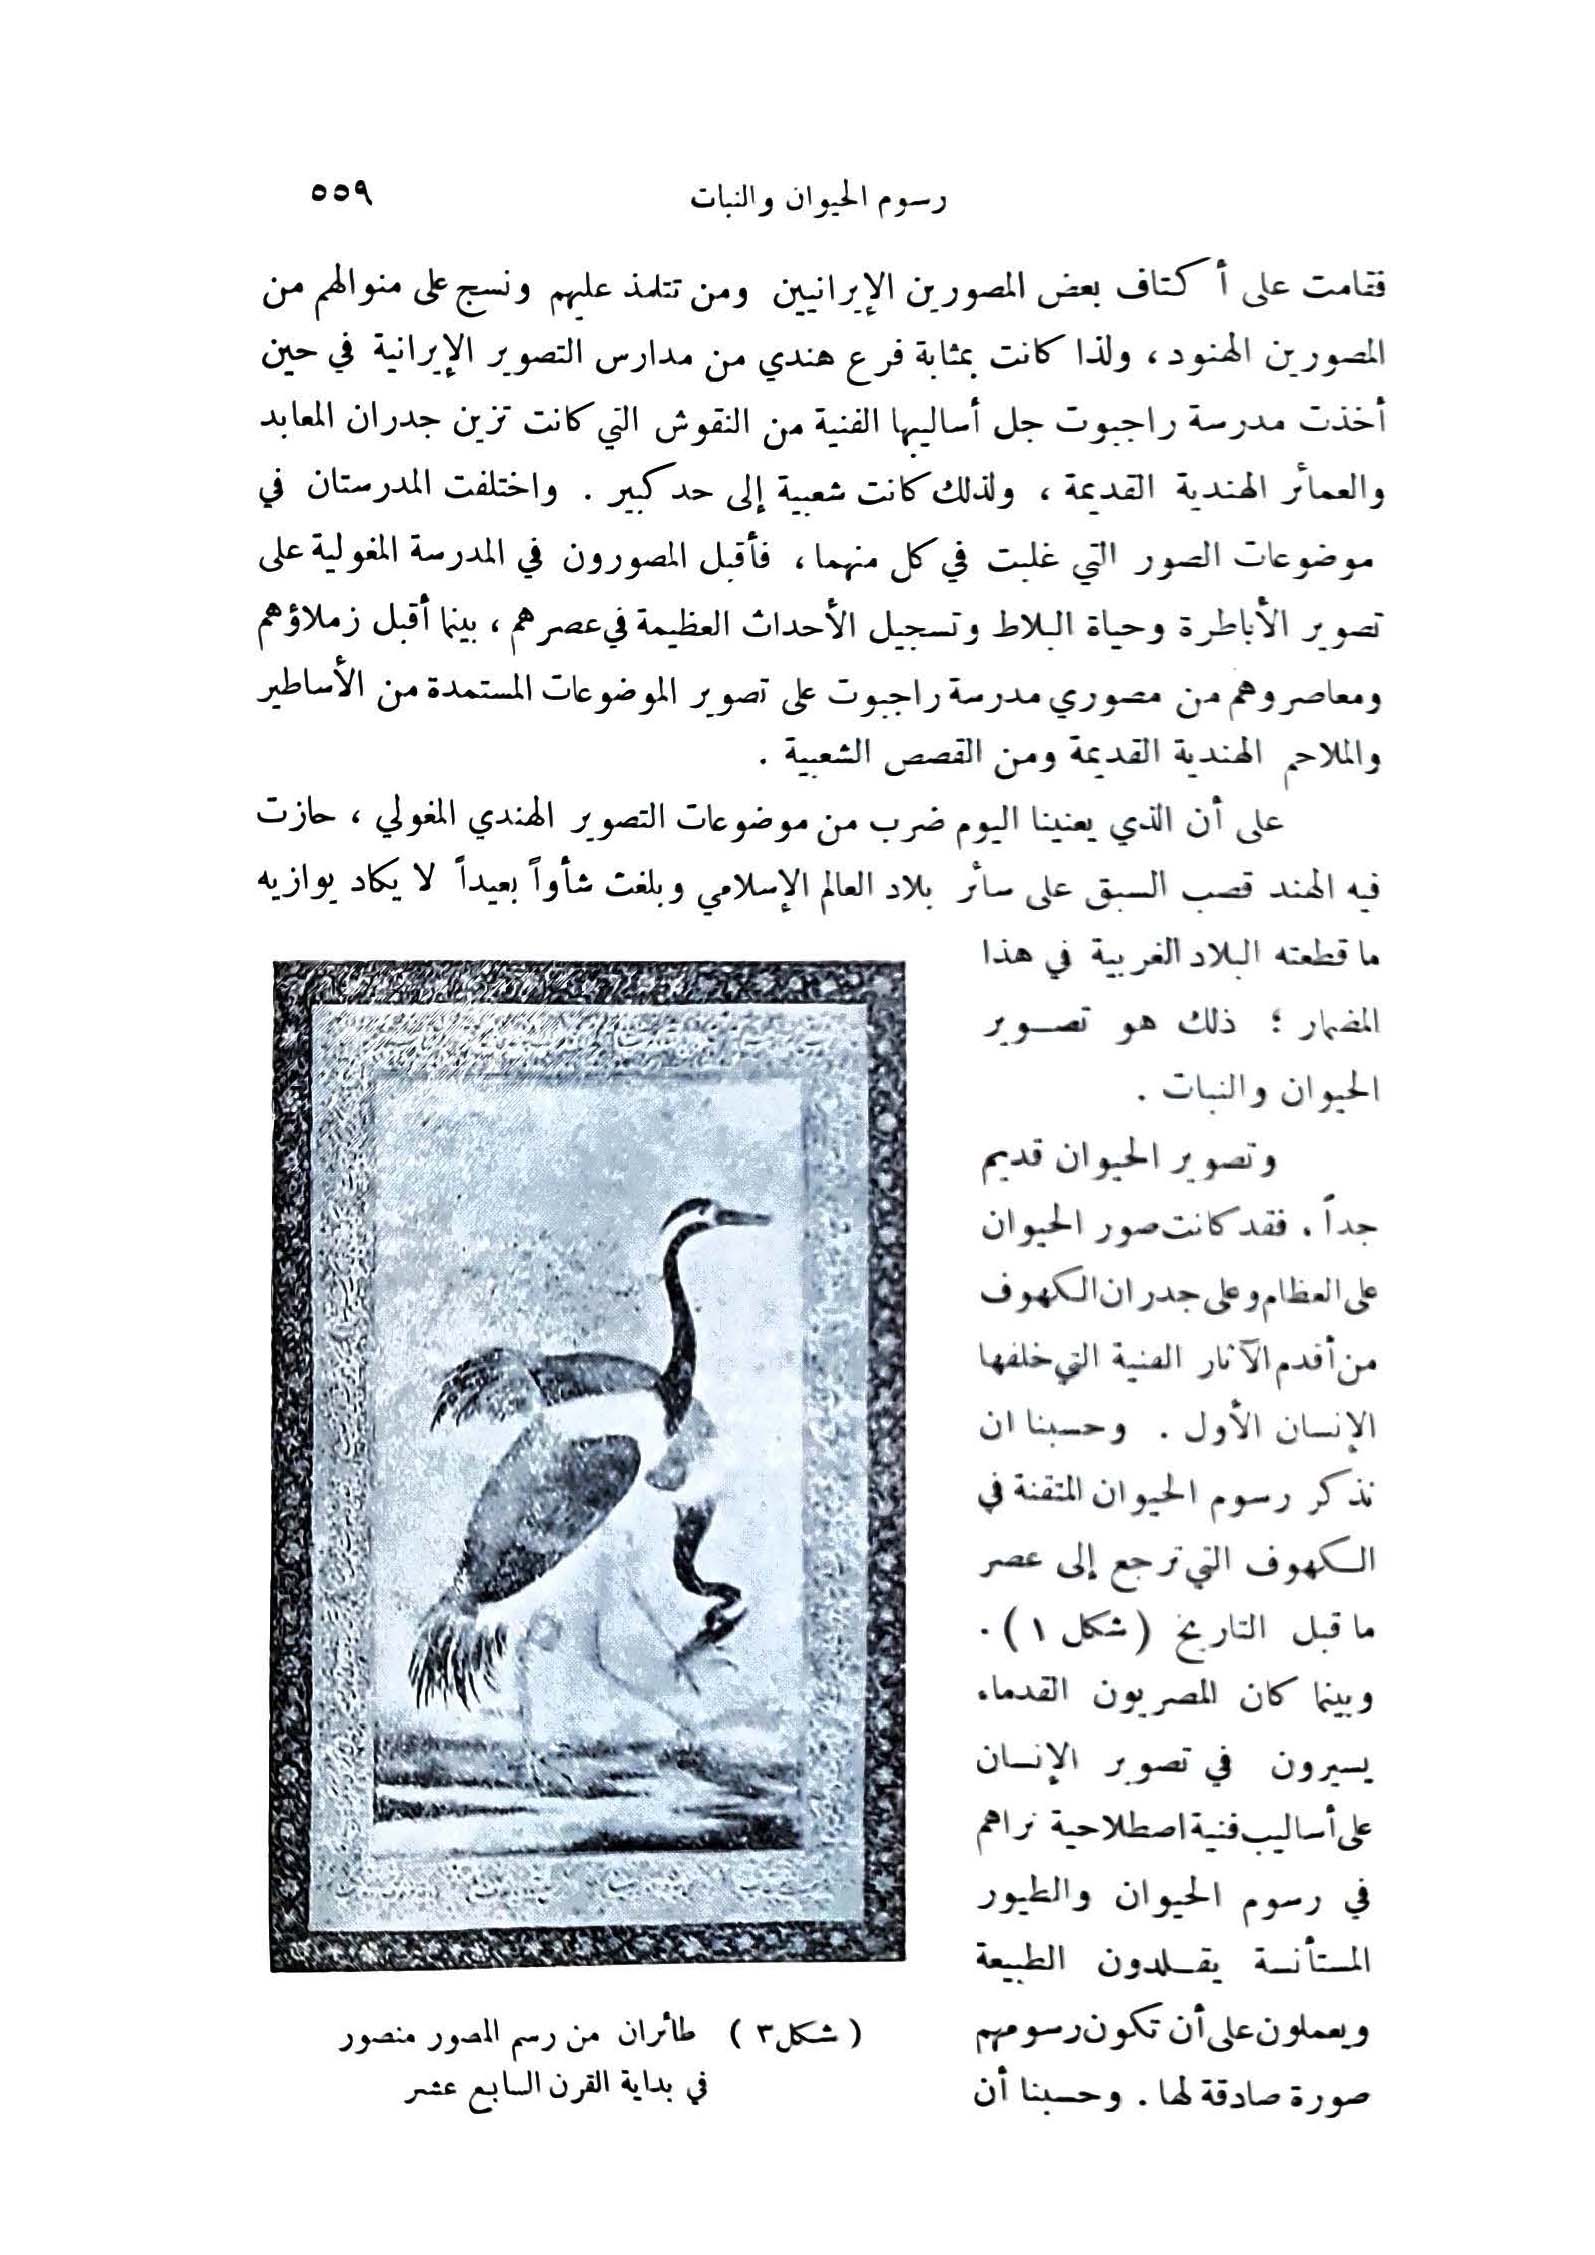 رسوم الحيوان والنبات ٥٥٩
فقامت على أكتاف بعض المصورين الإيرانيين ومن تتلمذ عليهم ونسج على منوالهم من
المصورين الهنود، ولذا كانت بمثابة فرع هندي من مدارس التصوير الإيرانية في حين
أخذت مدرسة راجبوت جل أساليبها الفنية من النقوش التي كانت تزين جدران المعابد
والعمائر الهندية القديمة ، ولذلك كانت شعبية إلى حد كبير . واختلفت المدرستان في
موضوعات الصور التي غلبت في كل منهما ، فأقبل المصورون في المدرسة المغولية على
تصوير الأباطرة وحياة البلاط وتسجيل الأحداث العظيمة في عصرهم ، بينما أقبل زملاؤهم
ومعاصروهم من مصوري مدرسة راجبوت على تصوير الموضوعات المستمدة من الأساطير
والملاحم الهندية القديمة ومن القصص الشعبية .
على أن الذي يعنينا اليوم ضرب من موضوعات التصوير الهندي المغولي ، حازت
فيه الهند قصب السبق على سائر بلاد العالم الإسلامي وبلغت شأواً بعيداً لا يكاد يوازيه
ما قطعته البلاد الغربية في هذا
المضمار ؛ ذلك هو تصوير
الحيوان والنبات .
وتصوير الحيوان قديم
جداً . فقد كانت صور الحيوان
على العظام وعلى جدران الكهوف
من أقدم الآثار الفنية التي خلفها
الإنسان الأول . وحسبنا ان
نذكر رسوم الحيوان المتقنة في
الكهوف التي ترجع إلى عصر
ما قبل التاريخ ( شكل ١ ) .
وبينما كان المصريون القدماء
يسيرون في تصوير الإنسان
على أساليب فنية اصطلاحية نراهم
في رسوم الحيوان والطيور
المستأنسة يقلدون الطبيعة
ويعملون على أن تكون رسومهم
صورة صادقة لها . وحسبنا أن
( شكل ٣ ) طائران من رسم المصور منصور
في بداية القرن السابع عشر